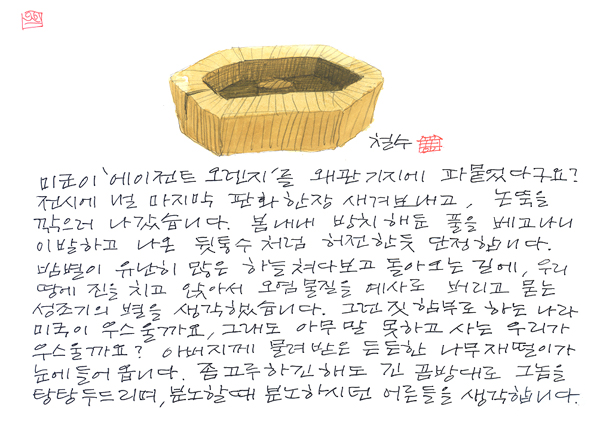 철수
미군이 '에이전트 오렌지'를 왜관기지에 파뭍었다구요?
전시에 널 마지막 판화한장 새겨보내고, 논둑을
깎으러 나갔습니다. 봄내내 방치해둔 풀을 베고나니
이발하고 나온 뒷통수처럼 허전한듯 단정합니다.
밤별이 유난히 많은 하늘쳐다보고 돌아오는 길에, 우리
땅에 진을 치고 앉아서 오염물질을 예사로 버리고 묻는
성조기의 별을 생각했습니다. 그런짓 함부로 하는 나라
미국이 우스울까요, 그래도 아무 말 못하고 사는 우리가
우스울까요? 아버지께 물려받은 든든한 나무재떨이가
눈에들어 옵니다. 좀끄루하긴해도 긴 곰방대로 그놈을
탕탕두드리며, 분노할때 분노하시던 어른들을 생각합니다.